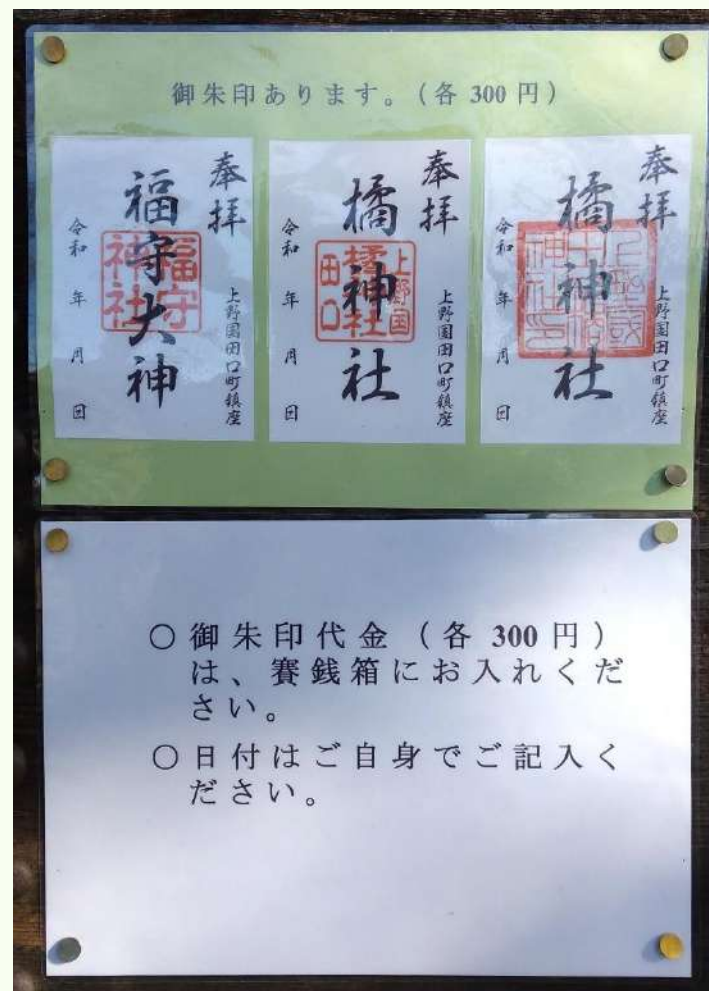 御朱印あります。（各300円）
奉拝
福守大神
福守
神社
上野国田口町鎮座
令和 年 月 日
奉拝
橘神社
上野国
橘神社
田口
上野国田口町鎮座
令和 年 月 日
奉拝
橘神社
上野国田口町鎮座
令和 年 月 日
○御朱印代金（各300円）
は、賽銭箱にお入れくだ
さい。
○日付はご自身でご記入く
ださい。